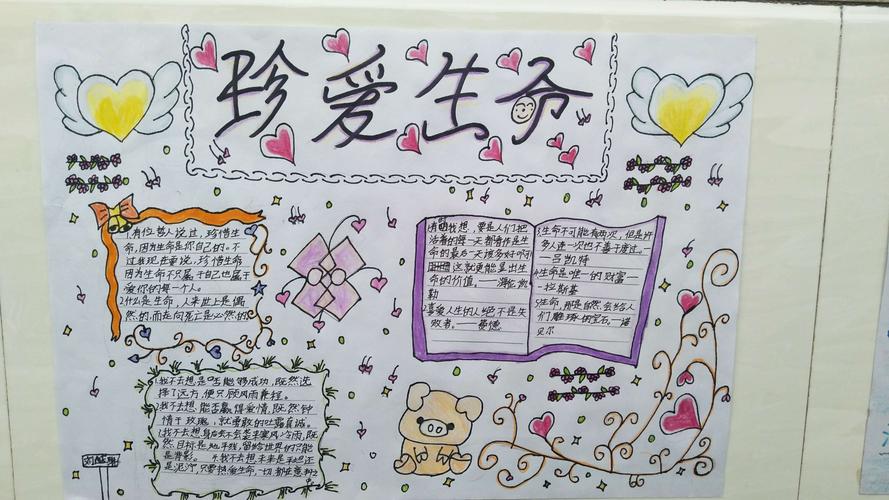 珍爱生命
1.有位哲人说过,珍惜生
命,因为生命是你自己的。不
过我现在要说,珍惜生命
因为生命不只属于自己也属于
爱你的每一个人。
2.什么是生命,人来世上是偶
然的,而走向死亡是必然的
有时我想,要是人们把
活着的每一天都看作是生
命的最后一天该多好啊!
这就更能显出生
命的价值。——海伦·凯
勒
2.喜爱人生的人绝不是失
败者。——费德
3.生命不可能有两次,但是许
多人连一次也不善于度过。—
—吕凯特
4.生命是唯一的财富—
—拉斯基
5.生命,那是自然会给人
们雕琢的宝石。—诺
贝尔
1.我不去想,是否能够成功,既然选
择了远方,便只顾风雨兼程。
2.我不去想,能否赢得爱情,既然钟
情于玫瑰,就勇敢的吐露真诚。
3.我不去想身后会不会袭来寒风冷雨,既
然目标是地平线,留给世界的只能
是背影。 4.我不去想未来是平坦还
是泥泞,只要热爱生命,一切都在意料之